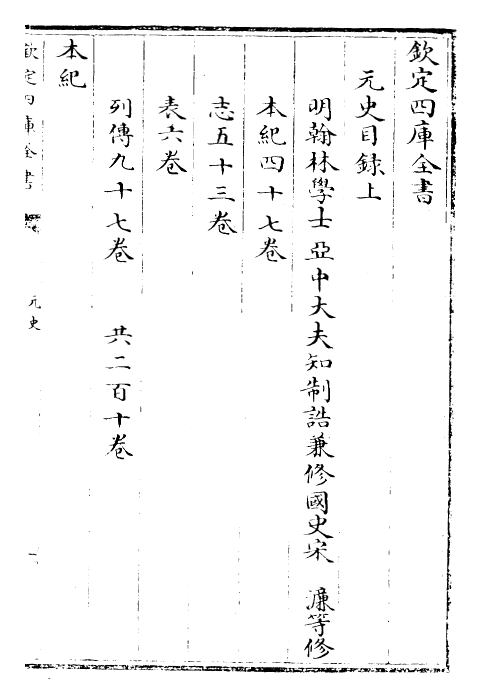 欽定四庫全書
元史目録上
明翰林學士亞中大夫知制誥兼修國史宋　濂等修
本紀四十七卷
志五十三卷
表六卷
列傳九十七卷　共二百十卷
本紀
欽定四庫全書　元史　一